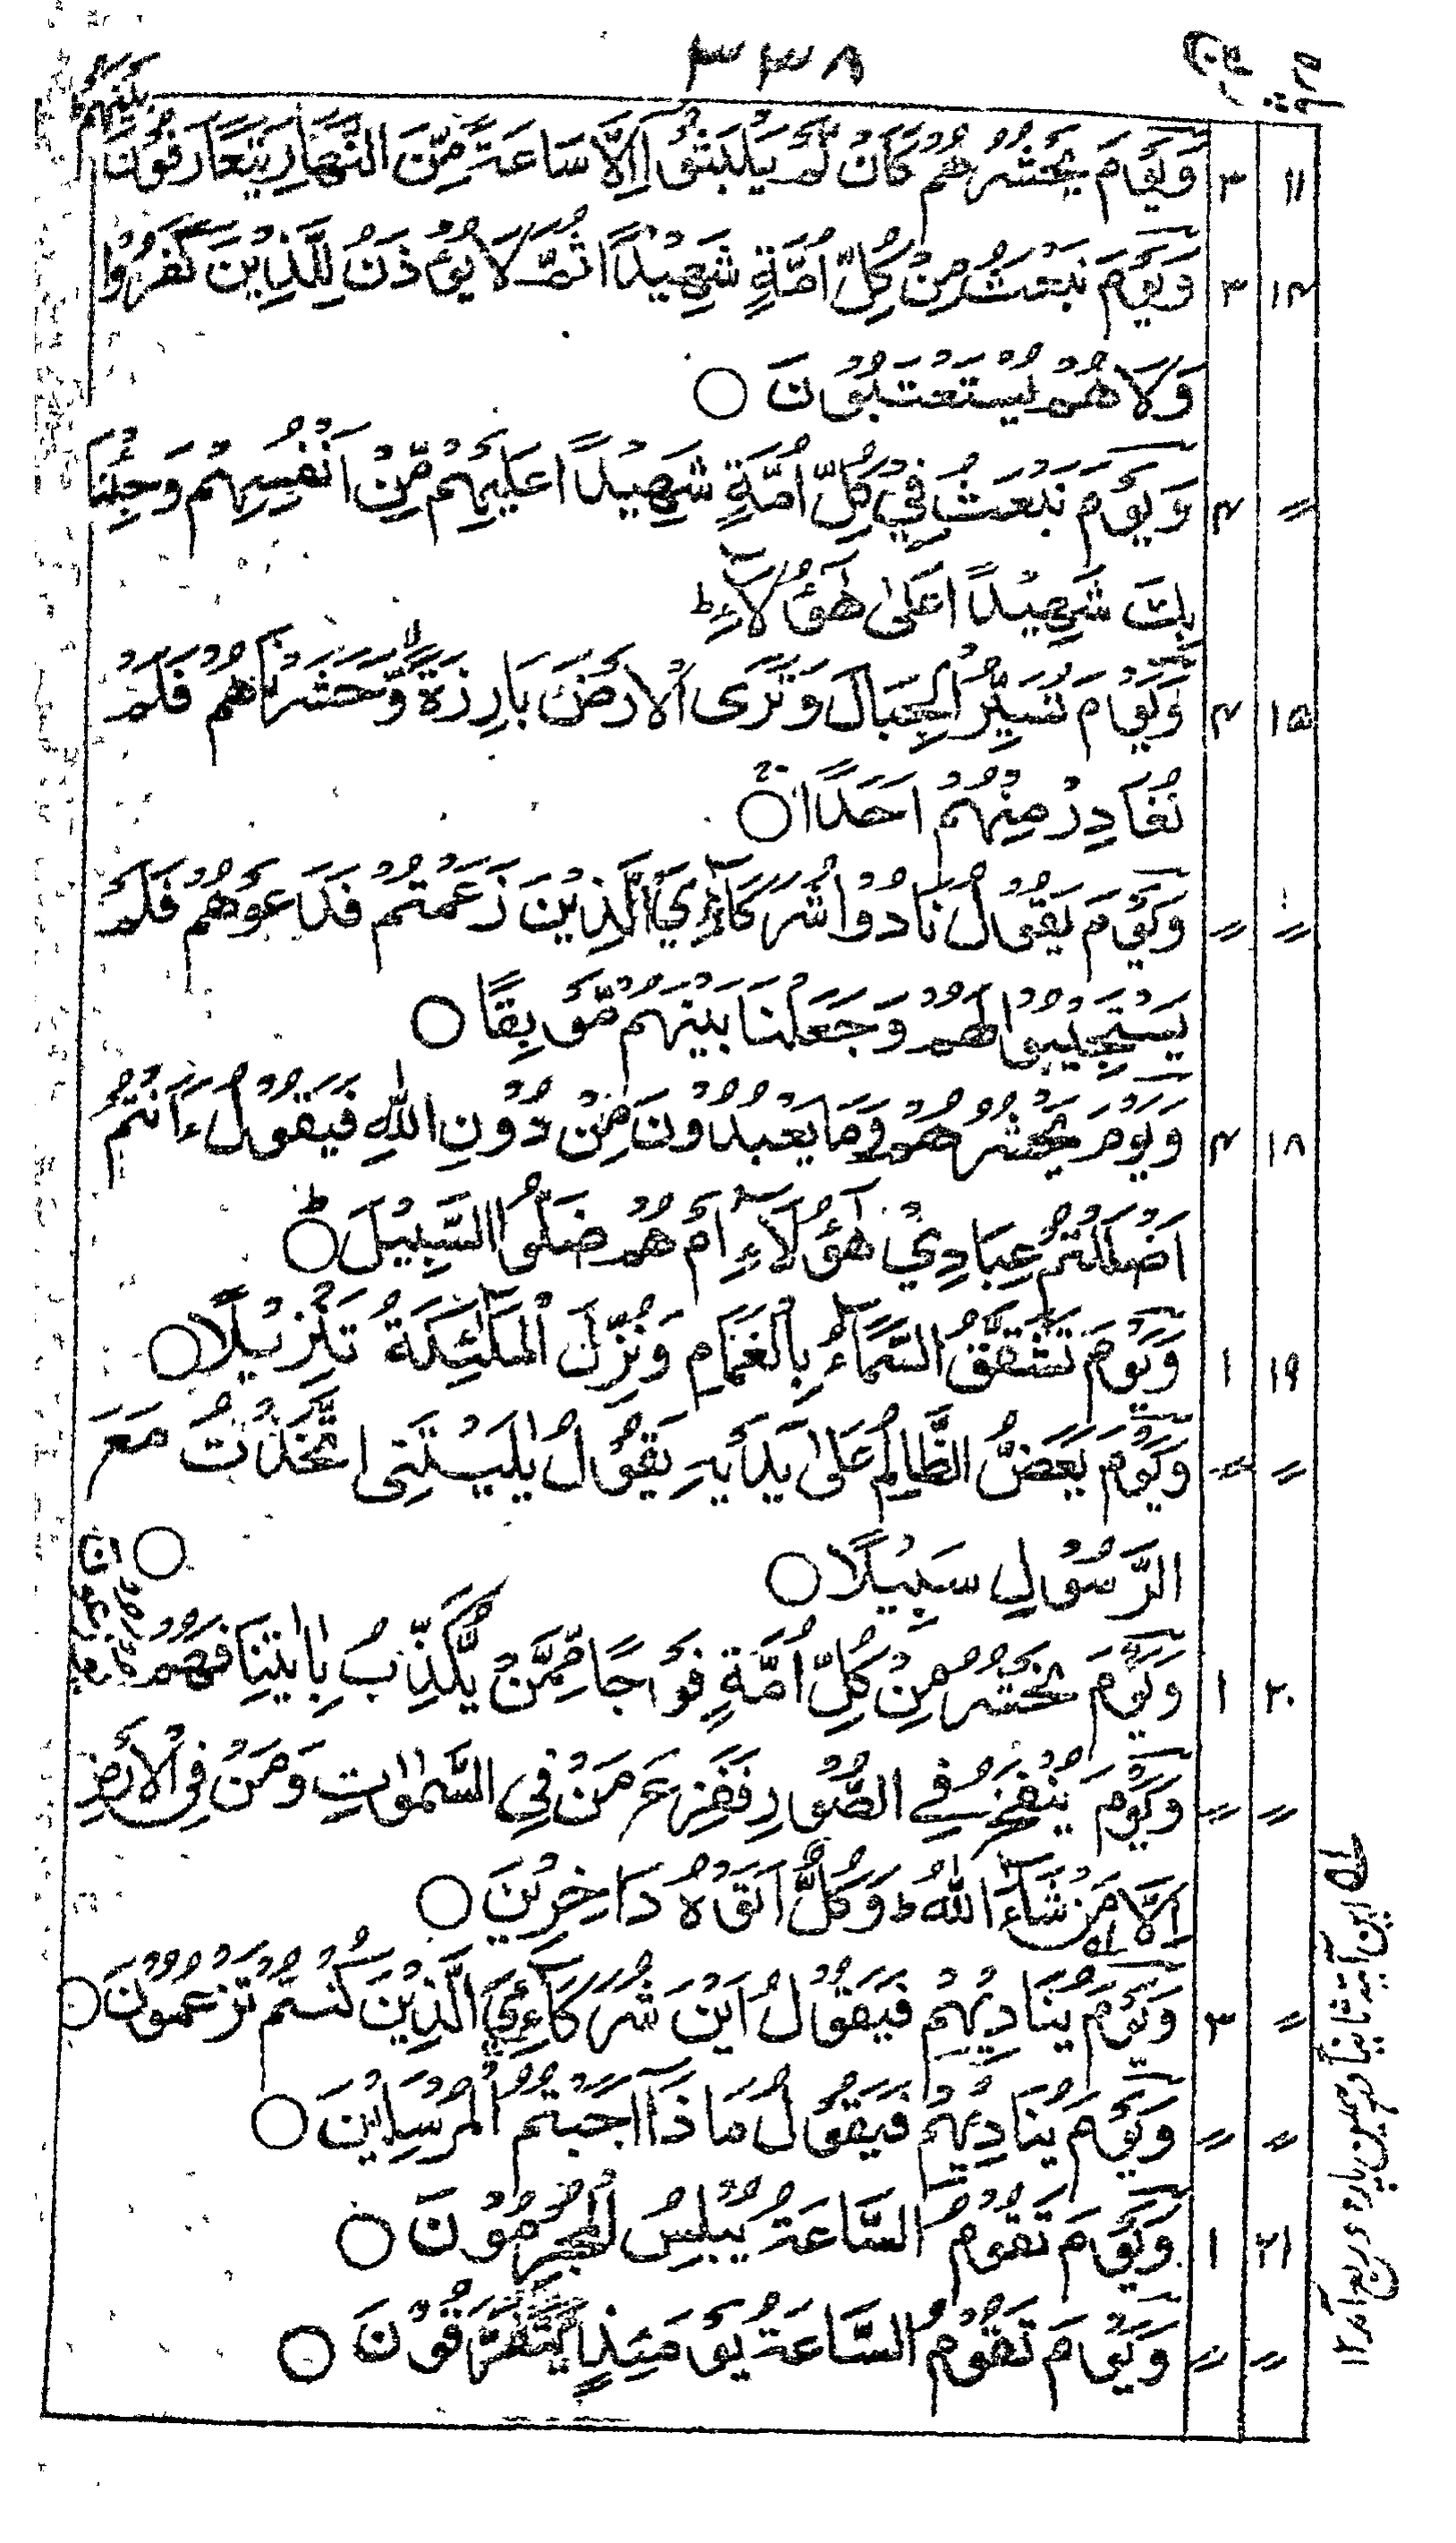 ۳۳۸
وَيَوْمَ يَحْشُرُهُمْ كَاَنْ لَّمْ يَلْبَثُوْٓا اِلَّا سَاعَةً مِّنَ النَّهَارِ يَتَعَارَفُوْنَ بَيْنَهُمْ ۳ ۱۱
وَيَوْمَ نَبْعَثُ مِنْ كُلِّ اُمَّةٍ شَهِيْدًا ثُمَّ لَا يُؤْذَنُ لِلَّذِيْنَ كَفَرُوْا ۳ ۱۴
وَلَا هُمْ يُسْتَعْتَبُوْنَ ○
وَيَوْمَ نَبْعَثُ فِيْ كُلِّ اُمَّةٍ شَهِيْدًا عَلَيْهِمْ مِّنْ اَنْفُسِهِمْ وَجِئْنَا ۴ ″
بِكَ شَهِيْدًا عَلٰى هٰٓؤُلَآءِ ؕ
وَيَوْمَ نُسَيِّرُ الْجِبَالَ وَتَرَى الْاَرْضَ بَارِزَةً ۙ وَّحَشَرْنٰهُمْ فَلَمْ ۴ ۱۵
نُغَادِرْ مِنْهُمْ اَحَدًا ○
وَيَوْمَ يَقُوْلُ نَادُوْا شُرَكَآءِيَ الَّذِيْنَ زَعَمْتُمْ فَدَعَوْهُمْ فَلَمْ ″ ″
يَسْتَجِيْبُوْا لَهُمْ وَجَعَلْنَا بَيْنَهُمْ مَّوْبِقًا ○
وَيَوْمَ يَحْشُرُهُمْ وَمَا يَعْبُدُوْنَ مِنْ دُوْنِ اللّٰهِ فَيَقُوْلُ ءَاَنْتُمْ ۴ ۱۸
اَضْلَلْتُمْ عِبَادِيْ هٰٓؤُلَآءِ اَمْ هُمْ ضَلُّوا السَّبِيْلَ ؕ○
وَيَوْمَ تَشَقَّقُ السَّمَآءُ بِالْغَمَامِ وَنُزِّلَ الْمَلٰٓئِكَةُ تَنْزِيْلًا ○ ۱ ۱۹
وَيَوْمَ يَعَضُّ الظَّالِمُ عَلٰى يَدَيْهِ يَقُوْلُ يٰلَيْتَنِى اتَّخَذْتُ مَعَ ″ ″
الرَّسُوْلِ سَبِيْلًا ○
وَيَوْمَ نَحْشُرُ مِنْ كُلِّ اُمَّةٍ فَوْجًا مِّمَّنْ يُّكَذِّبُ بِاٰيٰتِنَا فَهُمْ يُوْزَعُوْنَ ○ ۱ ۲۰
وَيَوْمَ يُنْفَخُ فِي الصُّوْرِ فَفَزِعَ مَنْ فِي السَّمٰوٰتِ وَمَنْ فِي الْاَرْضِ ″ ″
اِلَّا مَنْ شَآءَ اللّٰهُ ؕ وَكُلٌّ اَتَوْهُ دَاخِرِيْنَ ○
وَيَوْمَ يُنَادِيْهِمْ فَيَقُوْلُ اَيْنَ شُرَكَآءِيَ الَّذِيْنَ كُنْتُمْ تَزْعُمُوْنَ ○ ۳ ″
وَيَوْمَ يُنَادِيْهِمْ فَيَقُوْلُ مَاذَآ اَجَبْتُمُ الْمُرْسَلِيْنَ ○ ″ ″
وَيَوْمَ تَقُوْمُ السَّاعَةُ يُبْلِسُ الْمُجْرِمُوْنَ ○ ۱ ۲۱
وَيَوْمَ تَقُوْمُ السَّاعَةُ يَوْمَئِذٍ يَّتَفَرَّقُوْنَ ○ ″ ″
اين آيت ثانياً در همين پاره در ربع آمد ۱۲